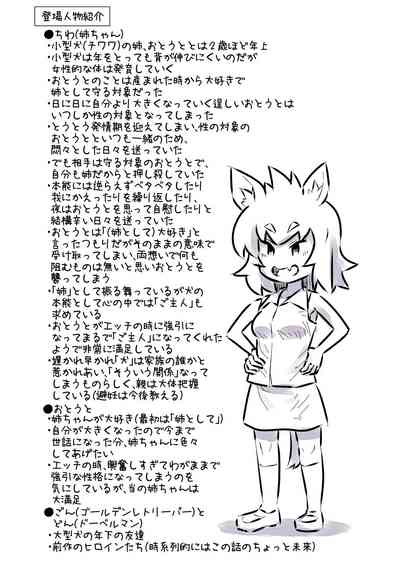 登場人物紹介
●ちわ(姉ちゃん)
・小型犬(チワワ)の姉、おとうととは2歳ほど年上
・小型犬は年をとっても背が伸びにくいのだが
女性的な体は発育していく
・おとうとのことは産まれた時から大好きで
姉として守る対象だった
・日に日に自分より大きくなっていく逞しいおとうとは
いつしか性の対象となってしまった
・とうとう発情期を迎えてしまい、性の対象の
おとうとといつも一緒のため、
悶々とした日々を送っていた
・でも相手は守る対象のおとうとで、
自分も姉だからと押し殺していた
・本能には逆らえずベタベタしたり
我にかえったりを繰り返したり、
夜はおとうとを思って自慰したりと
結構辛い日々を送っていた
・おとうとは「(姉として)大好き」と
言ったつもりだがそのままの意味で
受け取ってしまい、両想いで何も
阻むものは無いと思いおとうとを
襲ってしまう
・「姉」として振る舞っているが犬の
本能として心の中では「ご主人」も
求めている
・おとうとがエッチの時に強引に
なってまるで「ご主人」になってくれた
ようで非常に満足している
・遅かれ早かれ「犬」は家族の誰かと
惹かれあい、「そういう関係」なって
しまうものらしく、親は大体把握
している(避妊は今後教える)
●おとうと
・姉ちゃんが大好き(最初は「姉として」)
・自分が大きくなったので今まで
世話になった分、姉ちゃんに色々
してあげたい
・エッチの時、興奮しすぎてわがままで
強引な性格になってしまうのを
気にしているが、当の姉ちゃんは
大満足
●ごん(ゴールデンレトリーバー)と
どん(ドーベルマン)
・大型犬の年下の友達
・前作のヒロインたち(時系列的にはこの話のちょっと未来)